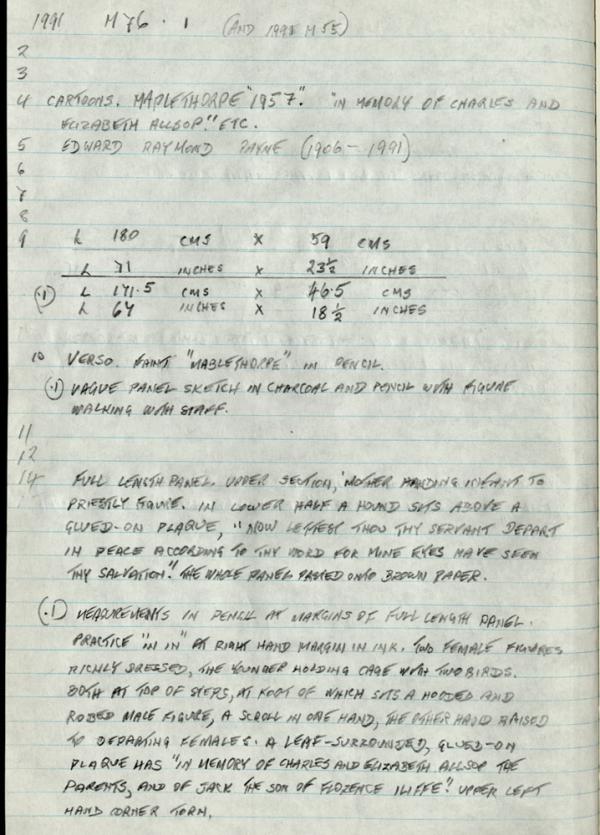 1991 M76.1 (AND 1991 M55)
2
3
4 CARTOONS. MAPLETHORPE "1957". "IN MEMORY OF CHARLES AND
ELIZABETH ALLSOP." ETC.
5 EDWARD RAYMOND PAYNE (1906-1991)
6
7
8
9 L 180 CMS X 59 CMS
L 71 INCHES X 23½ INCHES
(.1) L 171.5 CMS X 46.5 CMS
L 67 INCHES X 18½ INCHES
10 VERSO. FAINT "MABLETHORPE" IN PENCIL.
(.1) VAGUE PANEL SKETCH IN CHARCOAL AND PENCIL WITH FIGURE
WALKING WITH STAFF.
11
12
14 FULL LENGTH PANEL. UPPER SECTION, MOTHER HANDING INFANT TO
PRIESTLY FIGURE. IN LOWER HALF A HOUND SITS ABOVE A
GLUED-ON PLAQUE, "NOW LETTEST THOU THY SERVANT DEPART
IN PEACE ACCORDING TO THY WORD FOR MINE EYES HAVE SEEN
THY SALVATION." THE WHOLE PANEL PASTED ONTO BROWN PAPER.
(.1) MEASUREMENTS IN PENCIL AT MARGINS OF FULL LENGTH PANEL.
PRACTICE "IN IN" AT RIGHT HAND MARGIN IN INK. TWO FEMALE FIGURES
RICHLY DRESSED, THE YOUNGER HOLDING CAGE WITH TWO BIRDS.
BOTH AT TOP OF STEPS, AT FOOT OF WHICH SITS A HOODED AND
ROBED MALE FIGURE, A SCROLL IN ONE HAND, THE OTHER HAND RAISED
TO DEPARTING FEMALES. A LEAF-SURROUNDED, GLUED-ON
PLAQUE HAS "IN MEMORY OF CHARLES AND ELIZABETH ALLSOP THE
PARENTS, AND OF JACK THE SON OF FLORENCE ILIFFE." UPPER LEFT
HAND CORNER TORN.